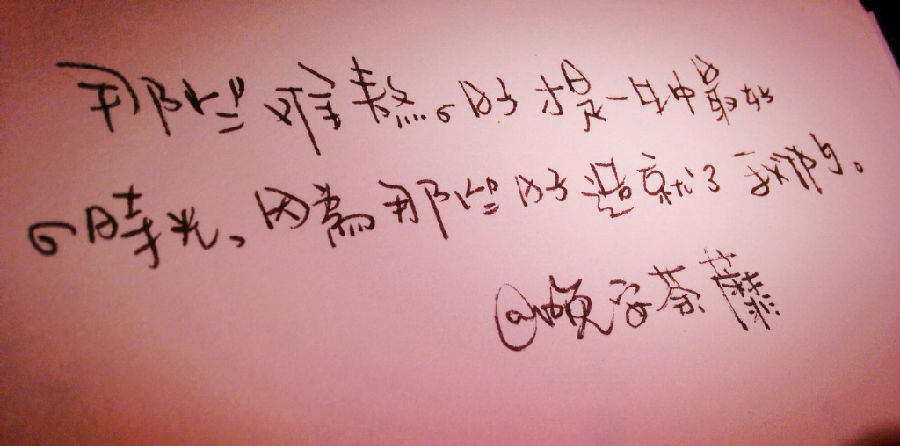 那些难熬的日子才是一生中最好
的時光,因為那些日子造就了我們。
@安荼蘼